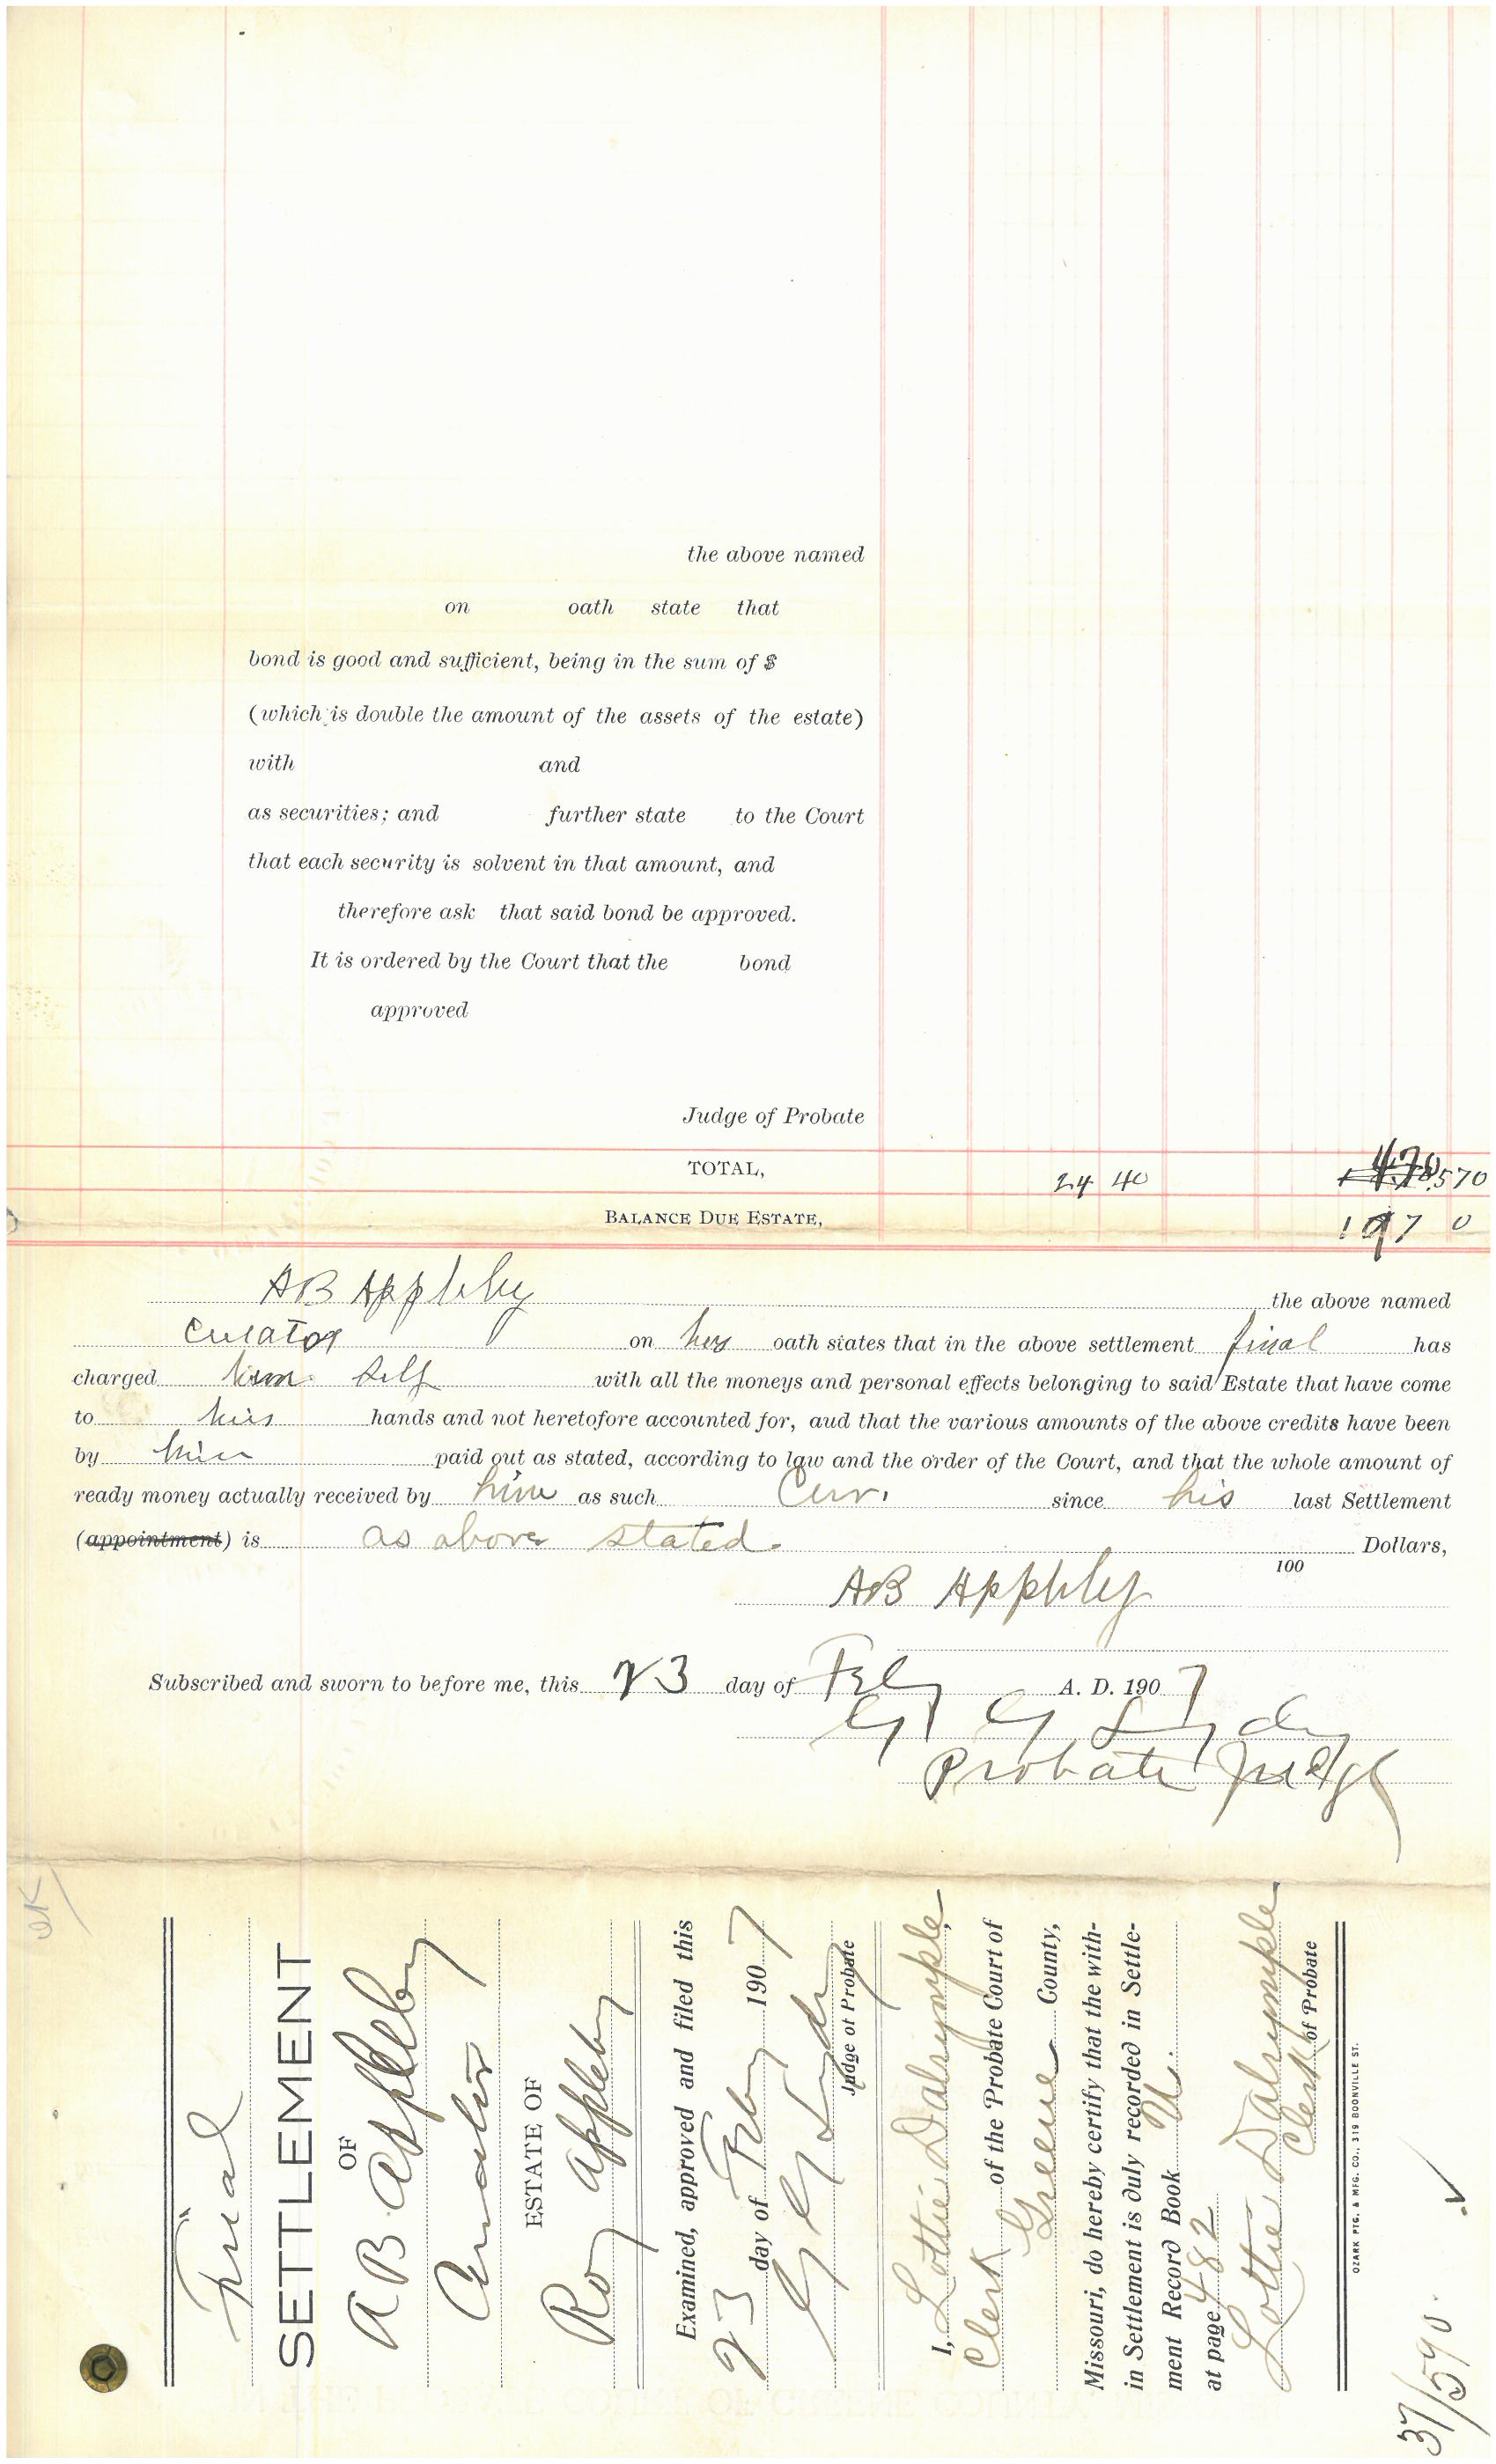 the above named
on oath state that
bond is good and sufficient, being in the sum of $
(which is double the amount of the assets of the estate)
with and
as securities; and further state to the Court
that each security is solvent in that amount, and
therefore ask that said bond be approved.
It is ordered by the Court that the bond
approved
Judge of Probate
TOTAL, 24 40 570
BALANCE DUE ESTATE, 197 0
AB Appleby the above named
Curator on his oath states that in the above settlement final has
charged him self with all the moneys and personal effects belonging to said Estate that have come
to his hands and not heretofore accounted for, aud that the various amounts of the above credits have been
by him paid out as stated, according to law and the order of the Court, and that the whole amount of
ready money actually received by him as such Cur. since his last Settlement
(appointment) is as above stated. Dollars,
100
AB Appleby
Subscribed and sworn to before me, this 23 day of Feby A. D. 1907
G G Lydy
Probate Judge
OK
Final
SETTLEMENT
OF
A B Appleby
Curator
ESTATE OF
Roy Appleby
Examined, approved and filed this
23 day of Feby 1907
G G Lydy
Judge of Probate
I, Lottie Dalrymple,
Clerk of the Probate Court of
Greene County,
Missouri, do hereby certify that the with-
in Settlement is duly recorded in Settle-
ment Record Book U.
at page 482
Lottie Dalrymple
Clerk of Probate
OZARK PTG. & MFG. CO., 319 BOONVILLE ST.
37/590